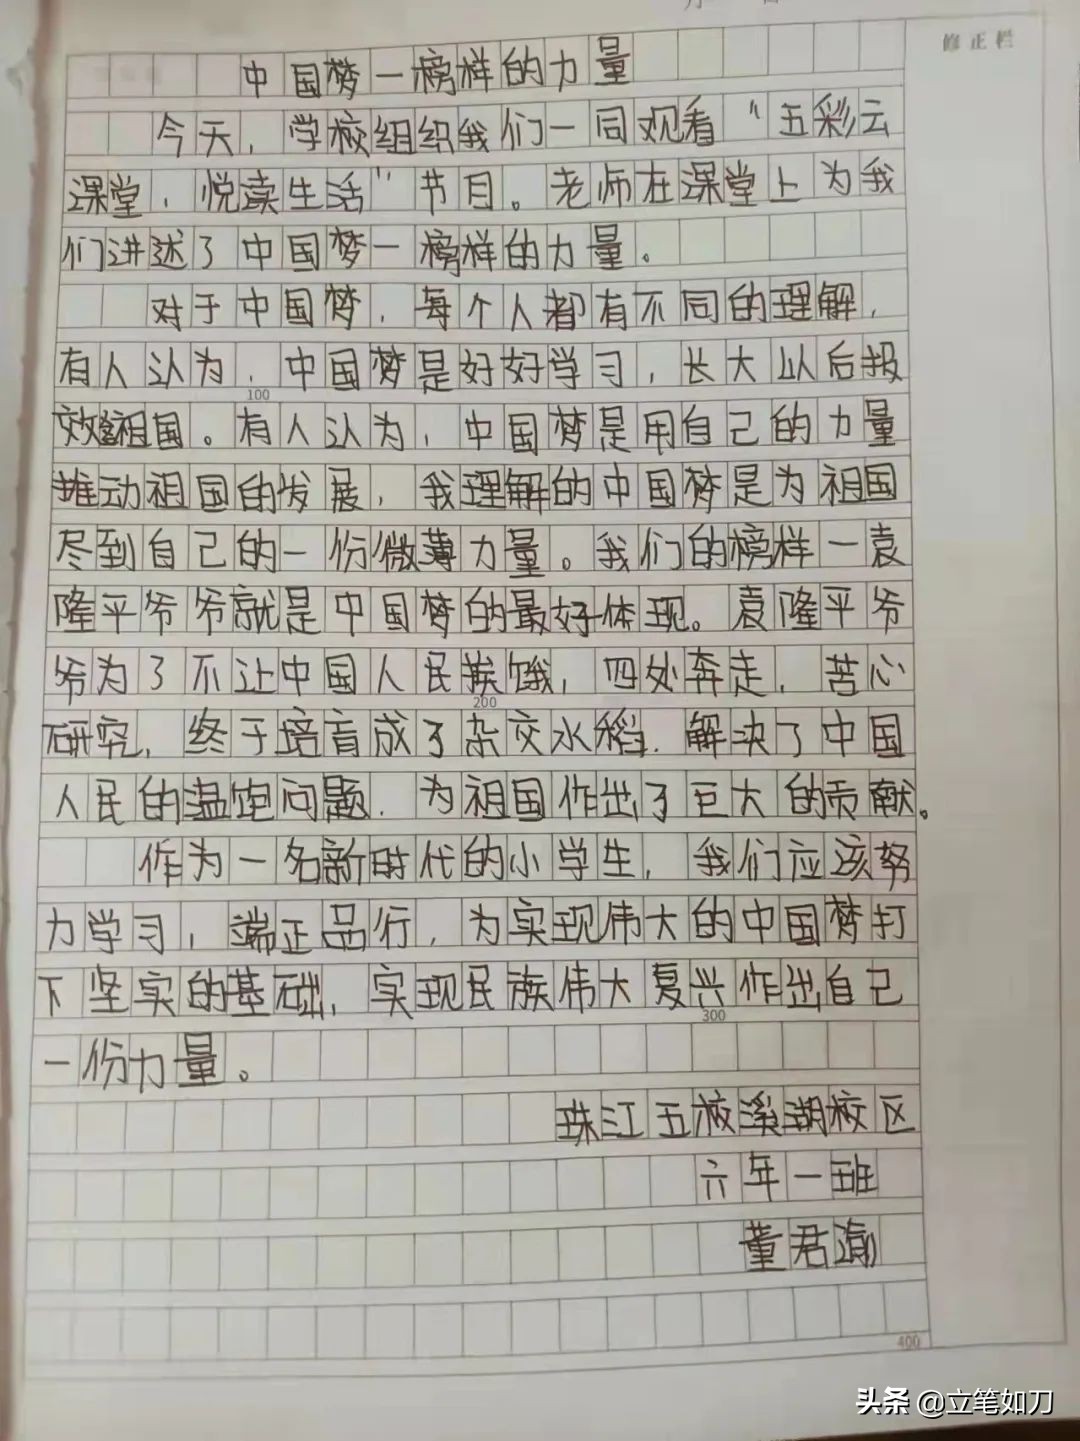 修正栏
中国梦一榜样的力量
今天，学校组织我们一同观看“五彩云
课堂，悦读生活”节目。老师在课堂上为我
们讲述了中国梦一榜样的力量。
对于中国梦，每个人都有不同的理解，
有人认为，中国梦是好好学习，长大以后报
100
效祖国。有人认为，中国梦是用自己的力量
推动祖国的发展，我理解的中国梦是为祖国
尽到自己的一份微薄力量。我们的榜样一袁
隆平爷爷就是中国梦的最好体现。袁隆平爷
爷为了不让中国人民挨饿，四处奔走，苦心
200
研究，终于培育成了杂交水稻，解决了中国
人民的温饱问题，为祖国作出了巨大的贡献。
作为一名新时代的小学生，我们应该努
力学习，端正品行，为实现伟大的中国梦打
下坚实的基础，实现民族伟大复兴作出自己
300
一份力量。
珠江五校溪湖校区
六年一班
董君
400
头条 @立笔如刀